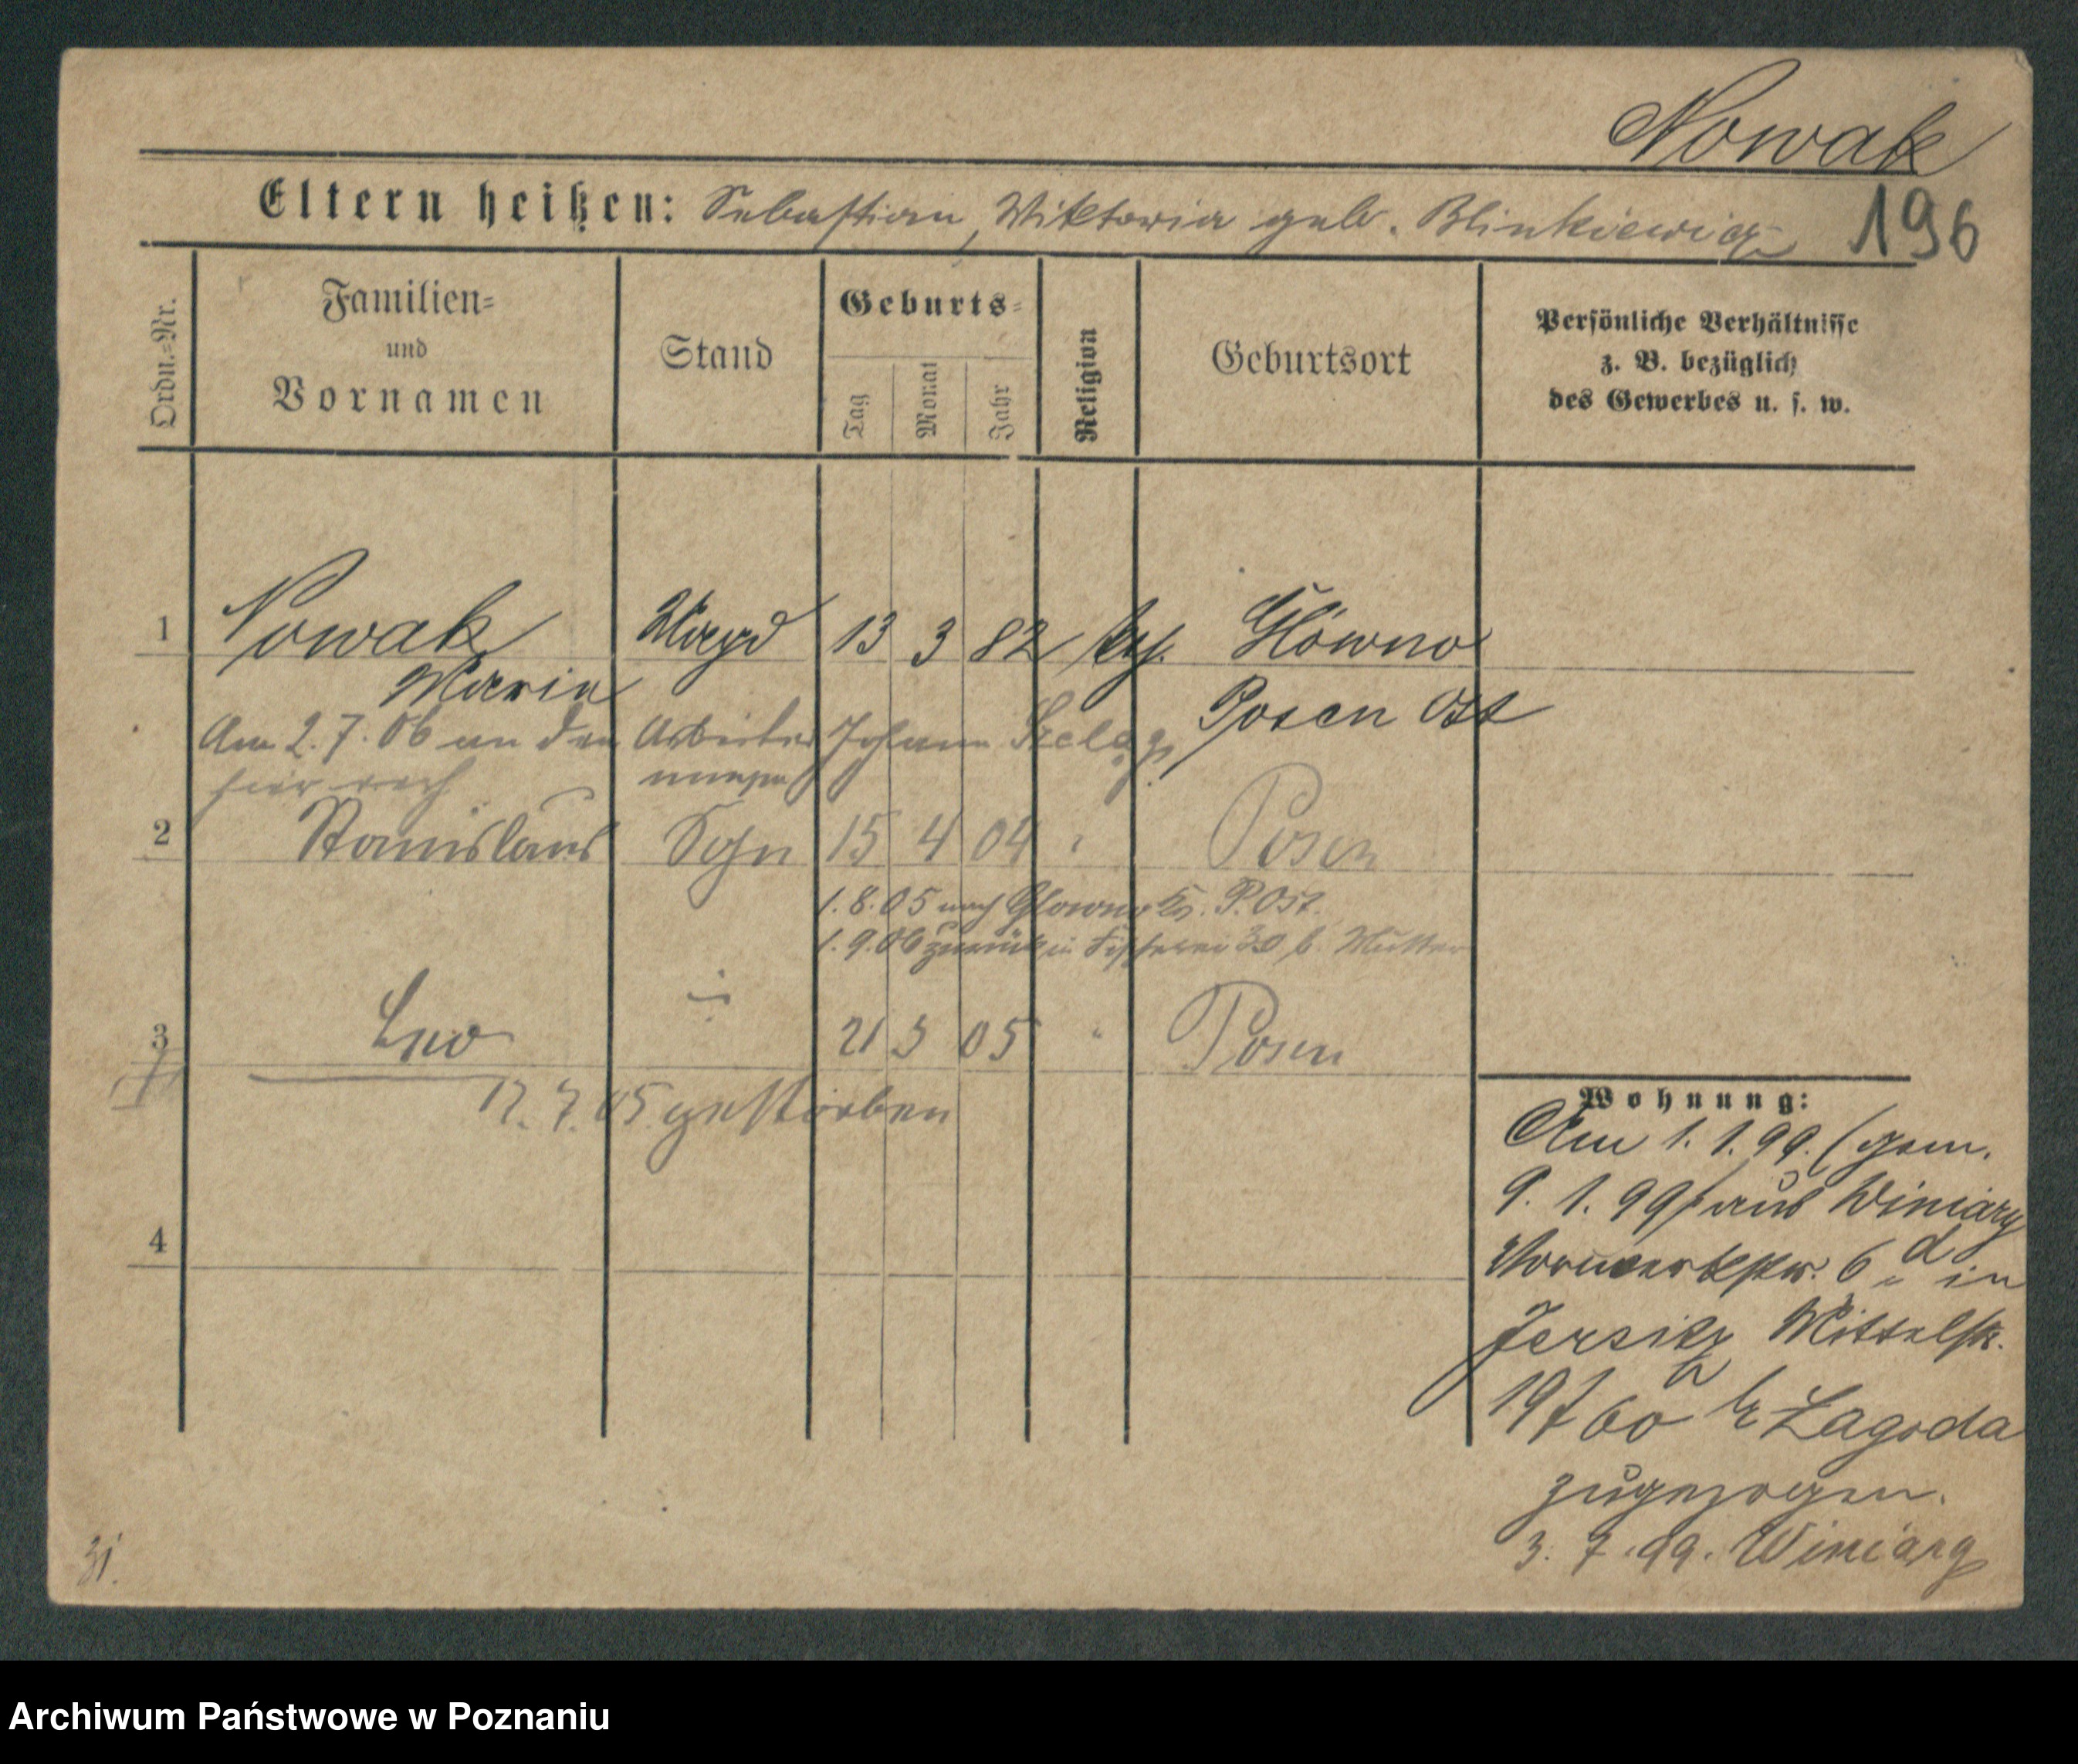 Nowak
Eltern heißen: Sebastian, Wiktoria geb. Blinkiewicz 196
Ordn.=Nr.
Familien=
und
Vornamen
Stand
Geburts=
Tag
Monat
Jahr
Religion
Geburtsort
Persönliche Verhältnisse
z. B. bezüglich
des Gewerbes u. s. w.
1 Nowak Magd 13 3 82 kth. Główno
Maria Posen Ost
Am 2. 7. 06 an den Arbeiter Johann Szeląg
hier verh
2 Stanislaus Sohn 15 4 04 " Posen
1. 8. 05 nach Glowno Kr. P. Ost.
1. 9. 06 zurück in Fischerei 30 b. Mutter
3 Leo " 21 5 05 " Posen
17. 7. 05. gestorben
4
Wohnung:
Am 1. 1. 99. (gem.
9. 1. 99) aus Winiary
Vorwerkstr. 6 d in
Jersitz Mittelstr.
19/60 b Lagoda
zugezogen.
3. 7. 99. Winiary
31.
Archiwum Państwowe w Poznaniu